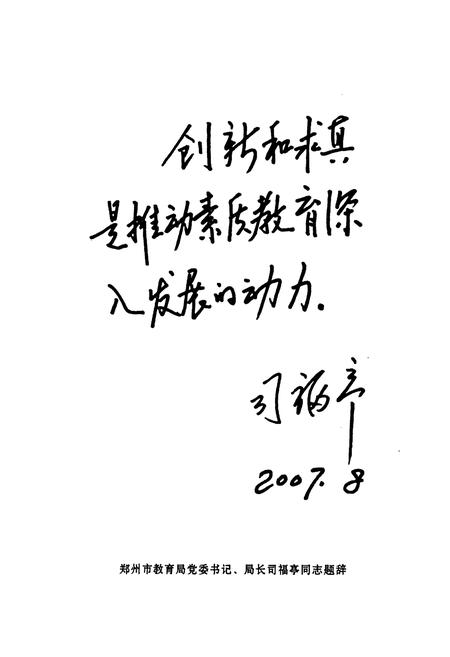 创新和求真
是推动素质教育深
入发展的动力.
司福亭
2007.8
郑州市教育局党委书记、局长司福亭同志题辞